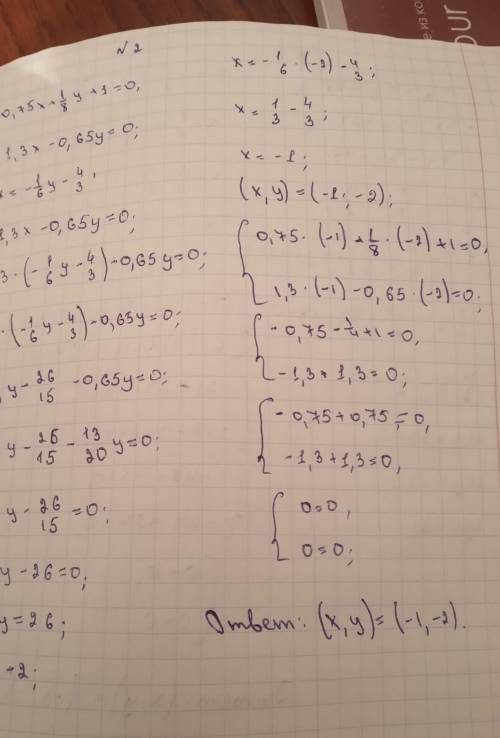 N2
0,75x+1/8y+1=0,
1,3x-0,65y=0;
x=-1/6y-4/3,
1,3x-0,65y=0;
3·(-1/6y-4/3)-0,65y=0;
·(-1/6y-4/3)-0,65y=0;
y-26/15-0,65y=0;
y-26/15-13/20y=0;
y-26/15=0;
y-26=0;
y=26;
-2;
x=-1/6·(-2)-4/3;
x=1/3-4/3;
x=-1;
(x,y)=(-1;-2);
0,75·(-1)+1/8·(-2)+1=0,
1,3·(-1)-0,65·(-2)=0;
-0,75-1/4+1=0,
-1,3+1,3=0;
-0,75+0,75=0,
-1,3+1,3=0,
0=0,
0=0;
Ответ: (x,y)=(-1,-2).